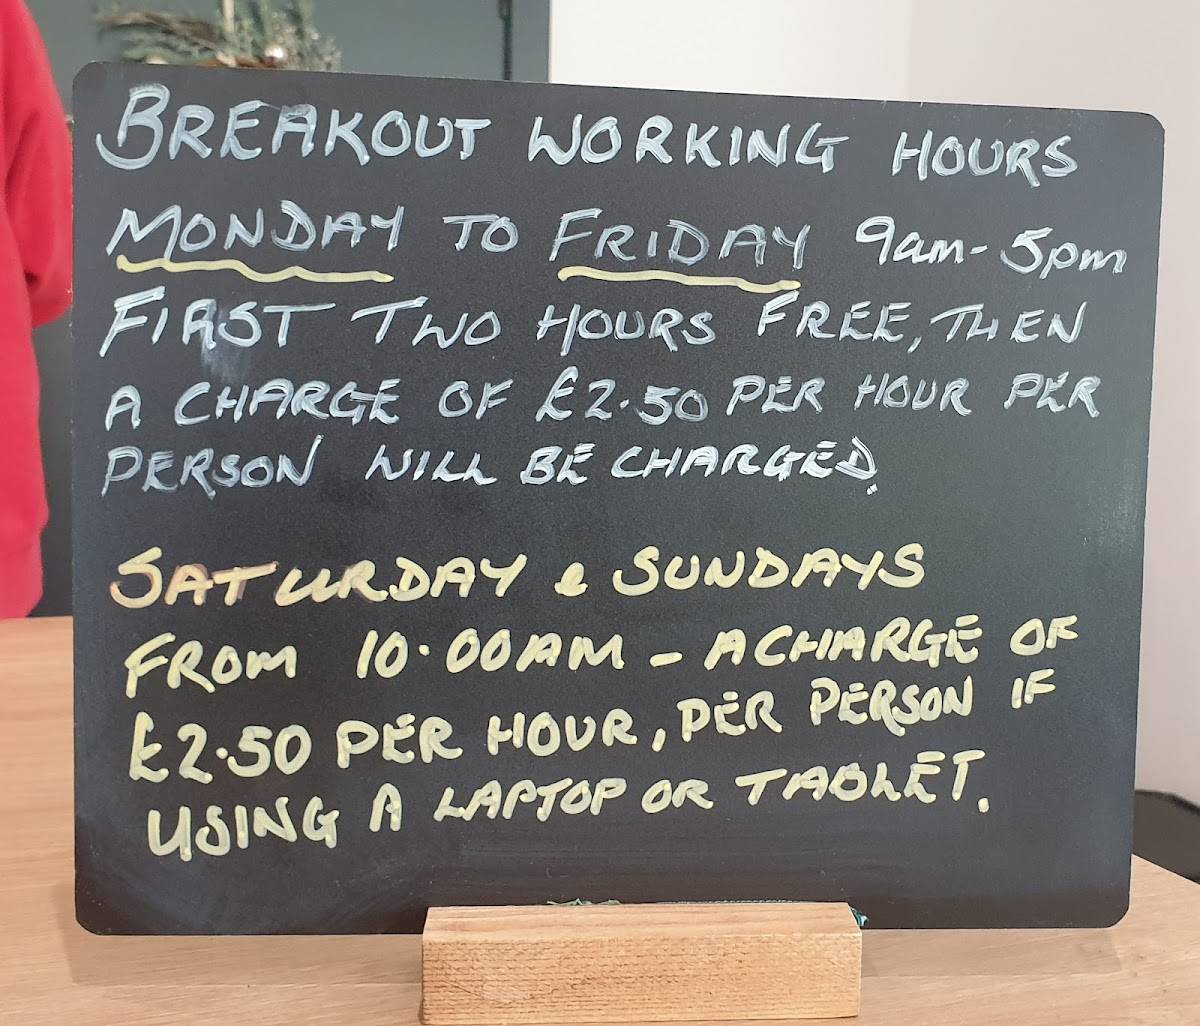 BREAKOUT WORKING HOURS
MONDAY TO FRIDAY 9am - 5pm
FIRST TWO HOURS FREE, THEN
A CHARGE OF £2.50 PER HOUR PER
PERSON WILL BE CHARGED.
SATURDAY & SUNDAYS
FROM 10.00AM - A CHARGE OF
£2.50 PER HOUR, PER PERSON IF
USING A LAPTOP OR TABLET.